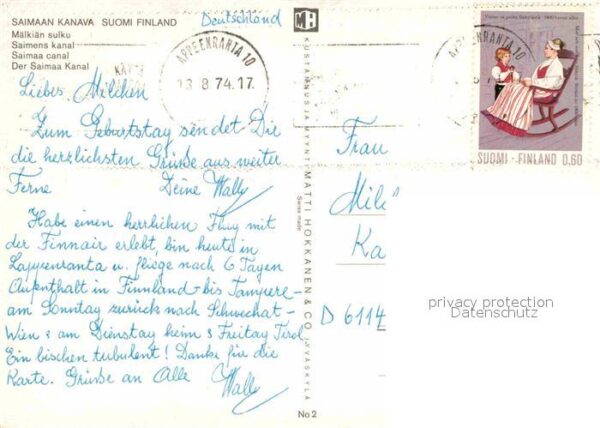 SAIMAAN KANAVA SUOMI FINLAND
Mälkiän sulku
Saimens kanal
Saimaa canal
Der Saimaa Kanal
Deutschland
Liebes Milchen
Zum Geburtstag sendet Dir
die herzlichsten Grüße aus weiter
Ferne Deine Wally
Habe einen herrlichen Flug mit
der Finnair erlebt, bin heute in
Lappenranta u. fliege nach 6 Tagen
Aufenthalt in Finnland - bis Tampere -
am Sonntag zurück nach Schwechat -
Wien & am Dienstag heim & Freitag Tirol
Ein bischen turbulent! Danke für die
Karte. Grüße an Alle Wally
MH
KUSTANNUS JA MYYNTI MATTI HOKKANEN & CO. JYVÄSKYLÄ
Swiss made
No 2
APPEENRANTA 10
13.8.74.17.
APPEENRANTA 10
SUOMI · FINLAND 0.60
Frau
Mil
Ka
D 6114
privacy protection
Datenschutz